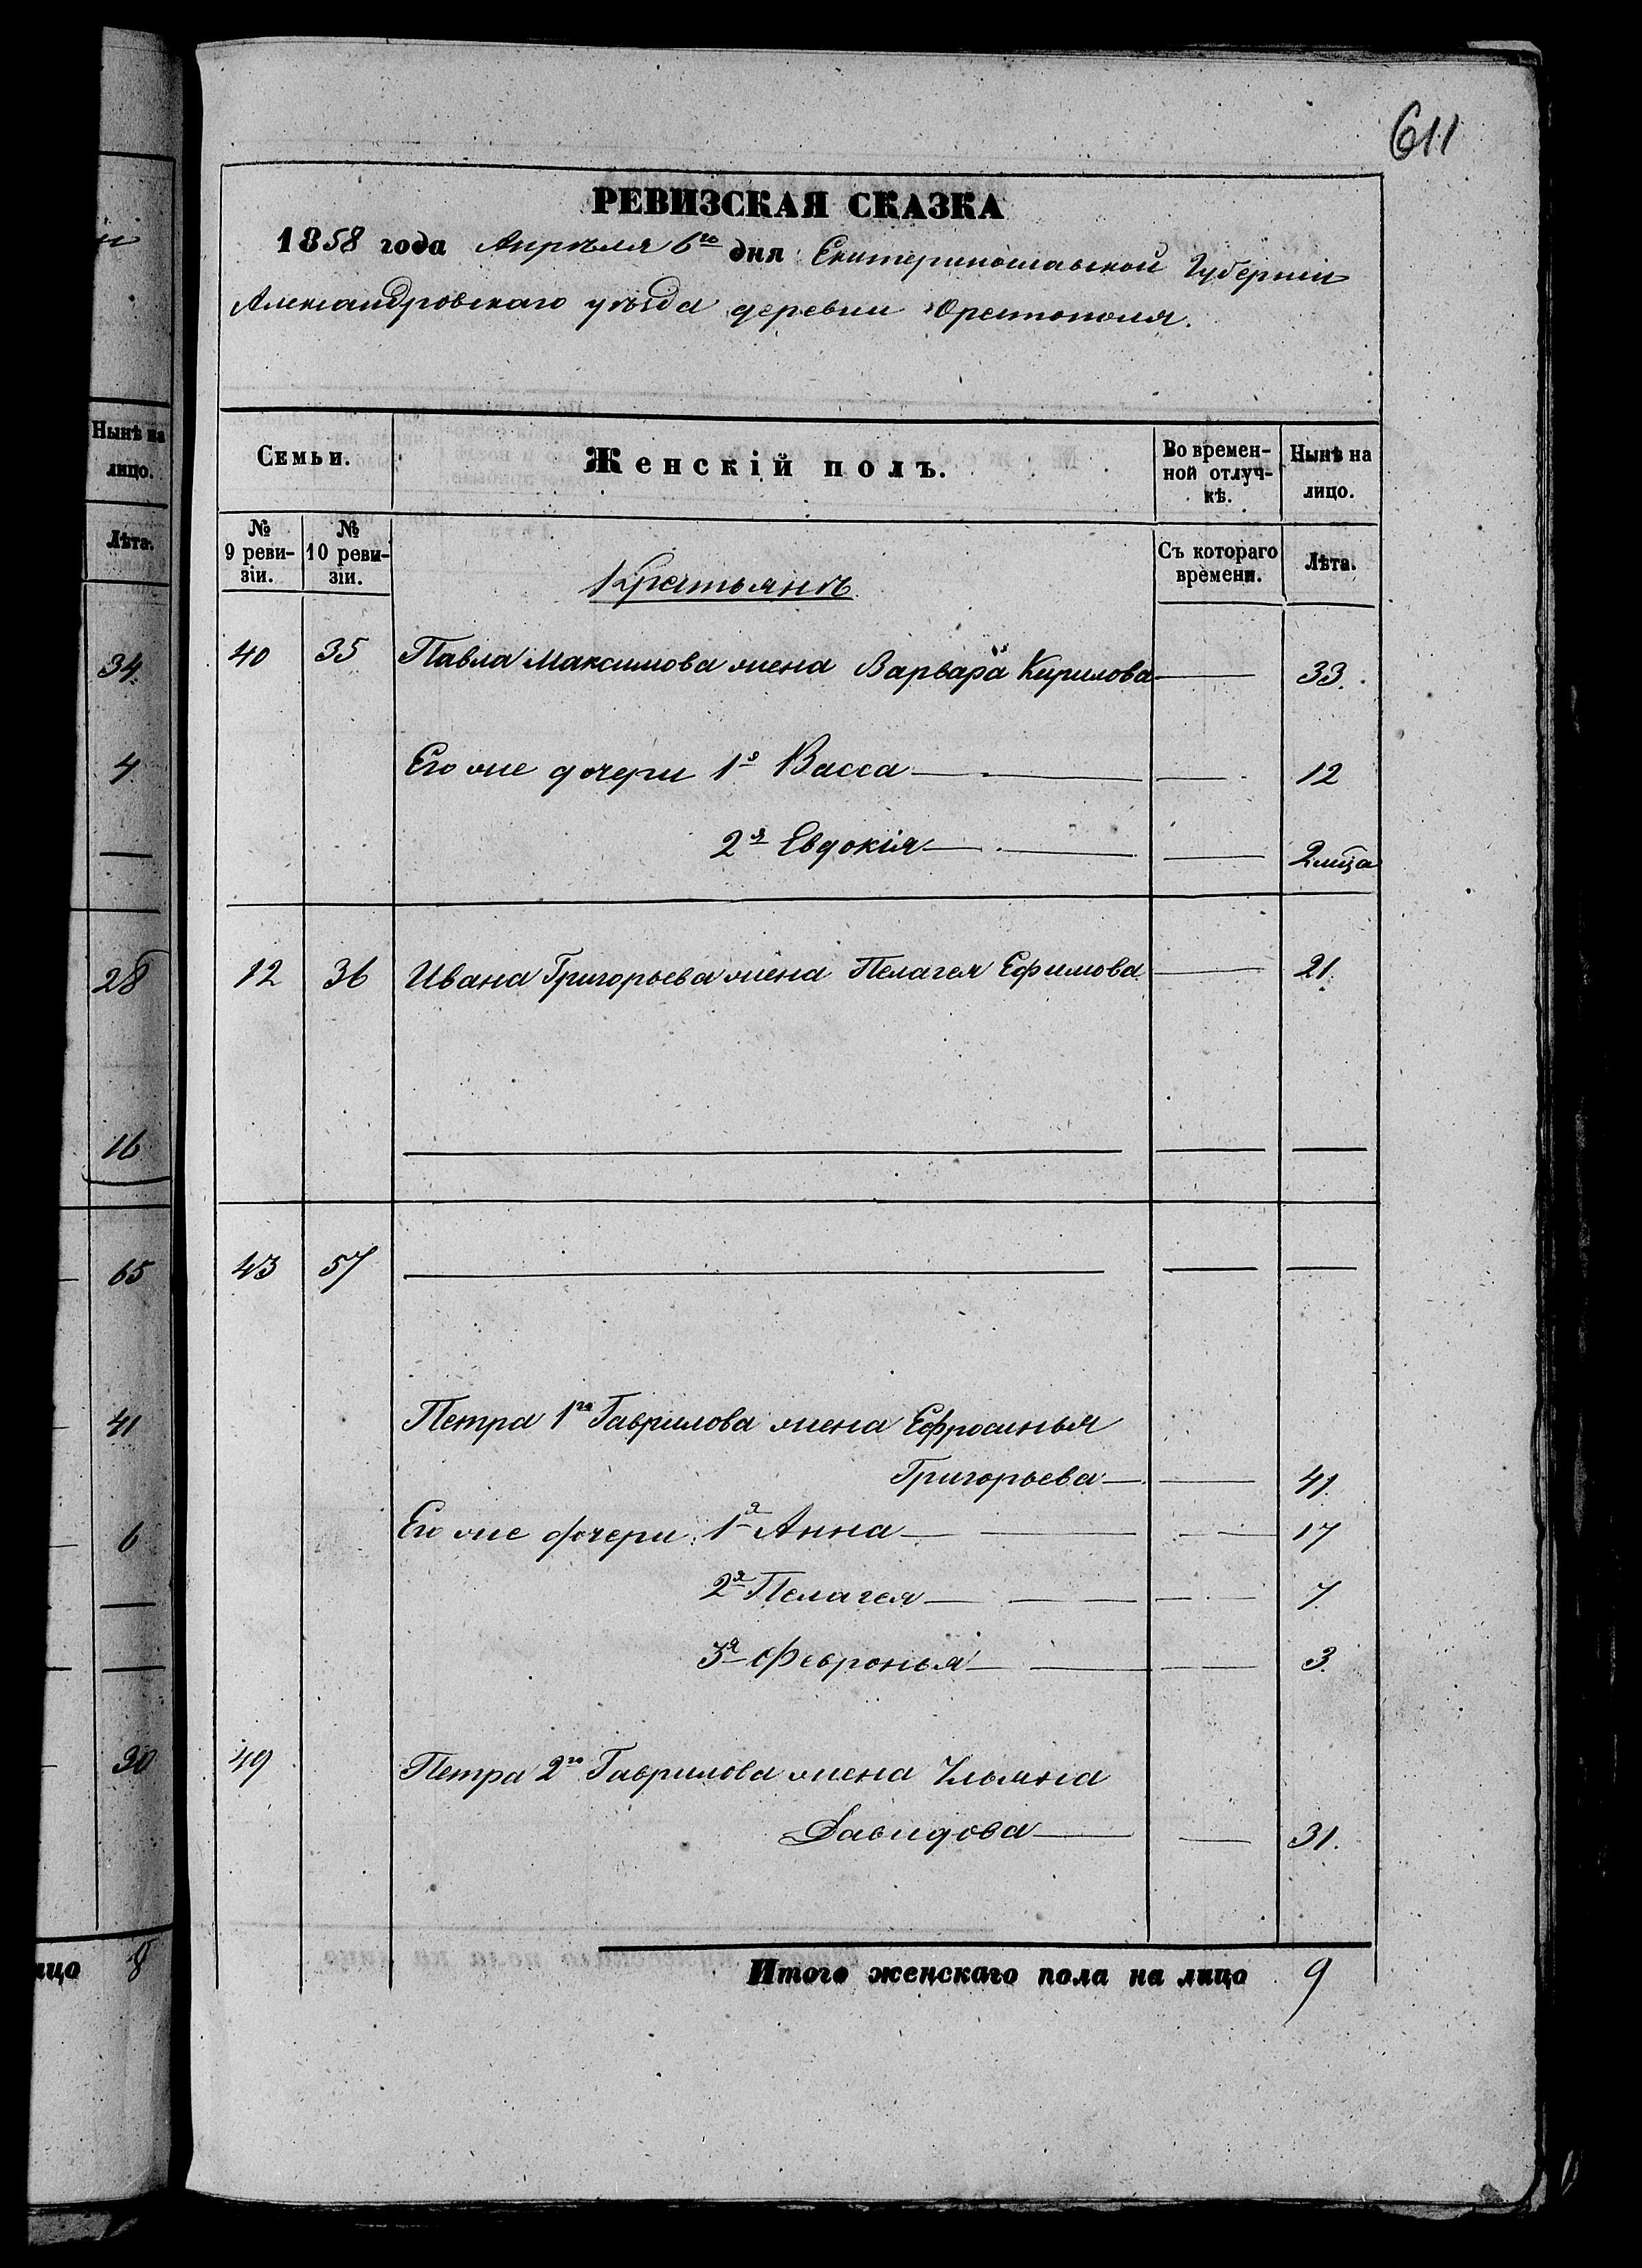 611
РЕВИЗСКАЯ СКАЗКА
1858 года Апрѣля 6го дня Екатеринославской Губерніи
Александровскаго уѣзда деревни Орестополя.
Семьи. Женскій полъ. Во времен-ной отлуч-кѣ. Нынѣ на лицо.
№ 9 реви-зіи. № 10 реви-зіи. Съ котораго времени. Лѣта.
Крестьянъ
40 35 Павла Максимова жена Варвара Кирилова 33.
Его же дочери 1я Васса 12
2я Евдокія 2 мца
12 36 Ивана Григорьева жена Пелагея Ефимова 21.
43 57
Петра 1го Гаврилова жена Ефросинья
Григорьева 41.
Его же дочери: 1я Анна 17
2я Пелагея 7.
3я Февронья 3.
49 Петра 2го Гаврилова жена Ульяна
Давидова 31.
Итого женскаго пола на лицо 9
Нынѣ на
лицо.
Лѣта.
34.
4
28
16
65
41
6
30
8